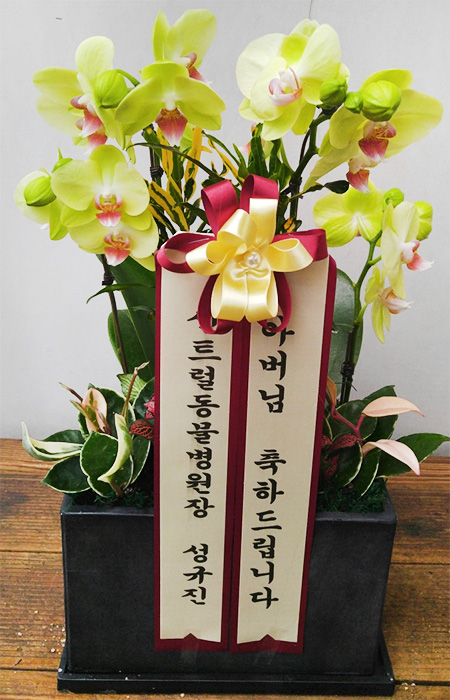 아버님 축하드립니다
센트럴동물병원장 성규진